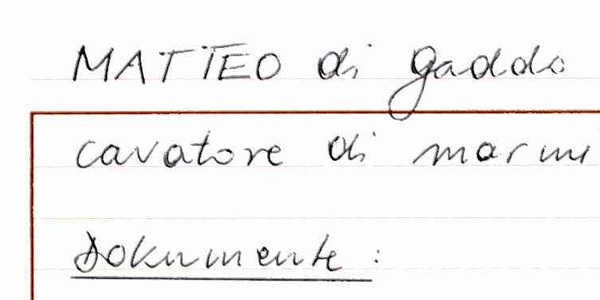 MATTEO di gaddo
cavatore di marmi
Dokumente: